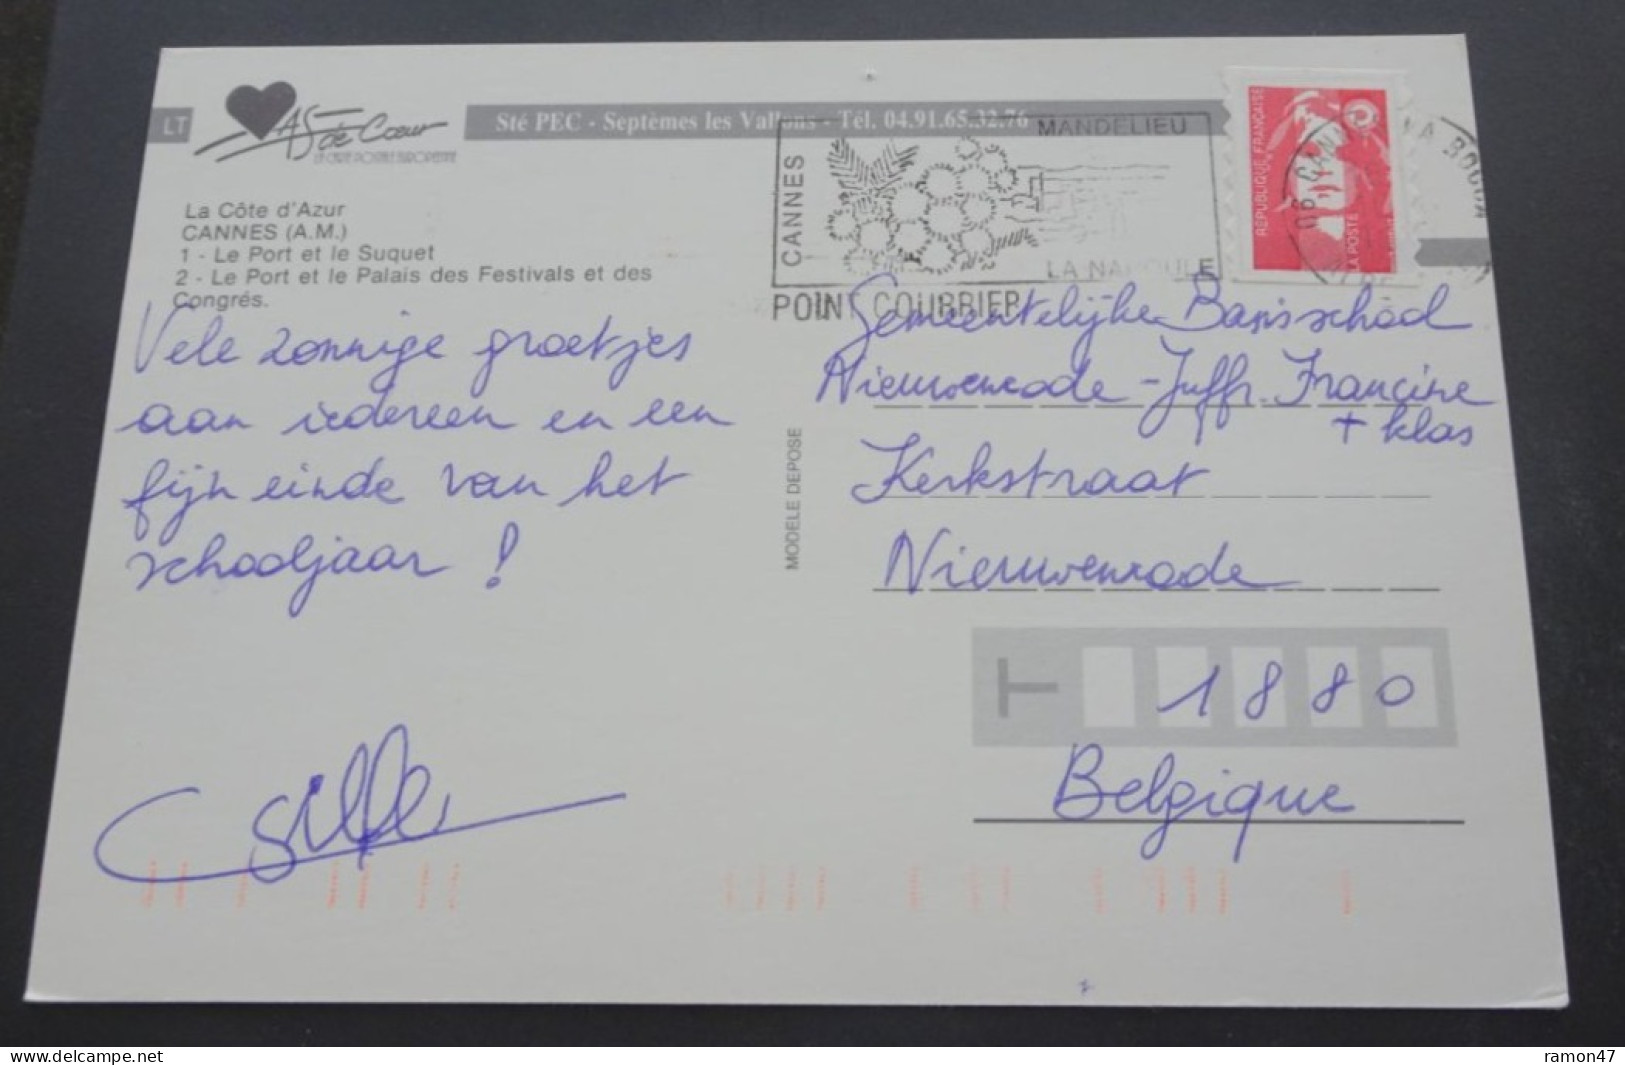 LT
AS de Cœur
LA CARTE POSTALE EUROPEENNE
Sté PEC - Septèmes les Vallons - Tél. 04.91.65.32.76
La Côte d'Azur
CANNES (A.M.)
1 - Le Port et le Suquet
2 - Le Port et le Palais des Festivals et des
Congrés.
Vele zonnige groetjes
aan iedereen en een
fijn einde van het
schooljaar !
MODELE DEPOSE
CANNES
MANDELIEU
LA NAPOULE
POINT COURRIER
REPUBLIQUE FRANÇAISE
LA POSTE
06 CANNES LA BOCCA
Gemeentelijke Basisschool
Nieuwenrode - Juffr. Francine
+ klas
Kerkstraat
Nieuwenrode
1880
Belgique
www.delcampe.net
ramon47